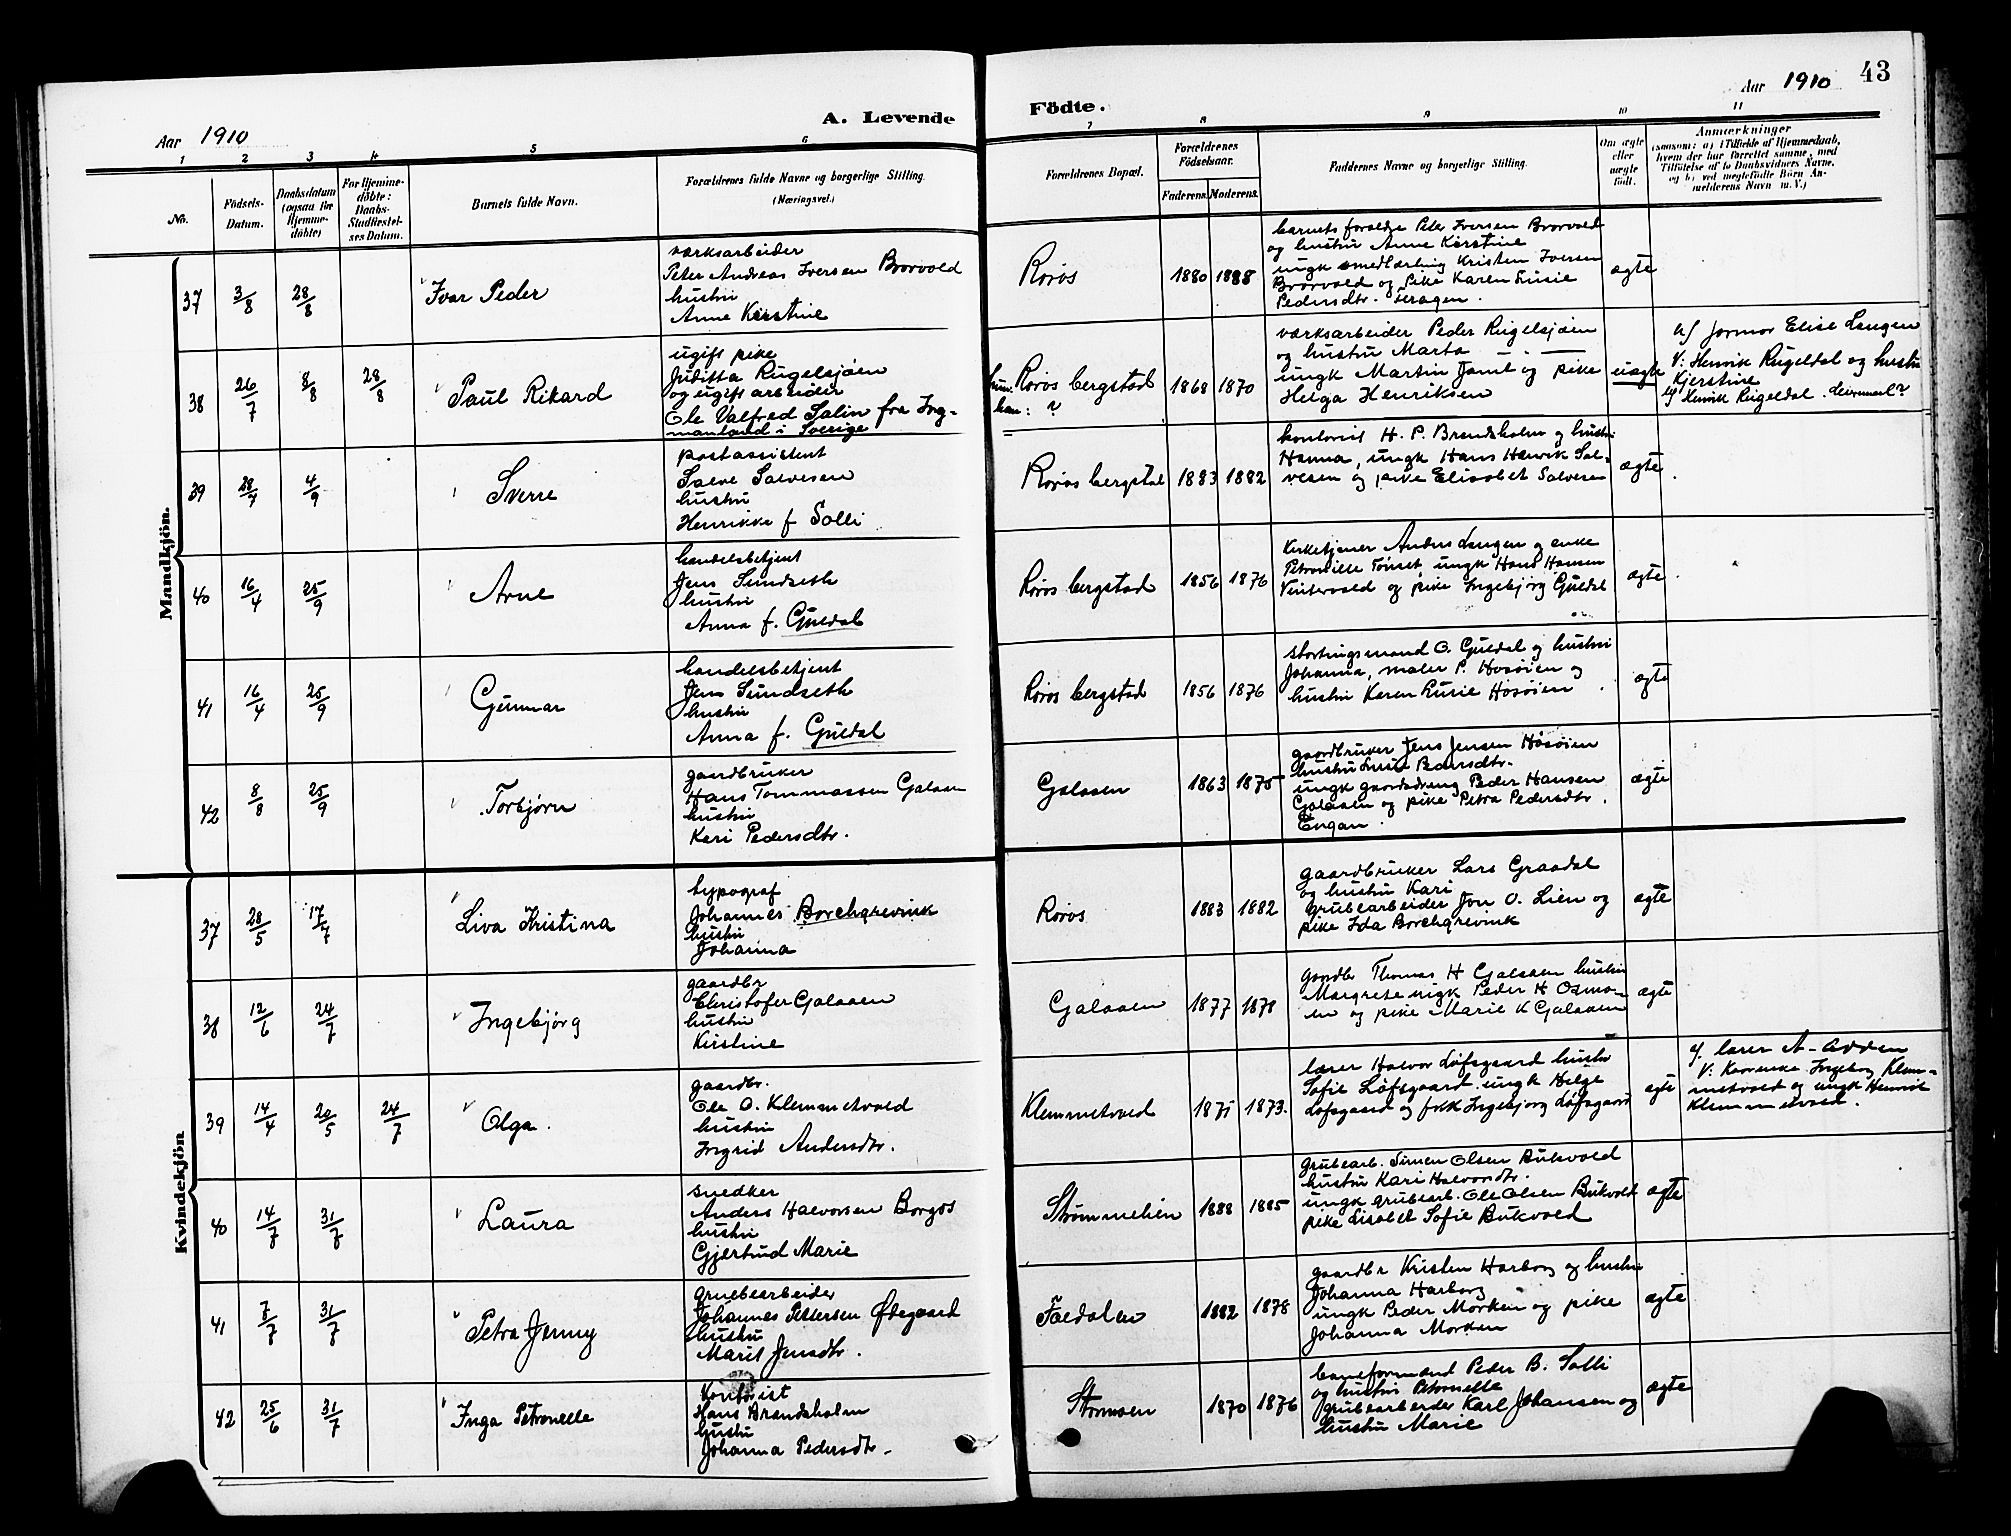 43
Aar 1910
A. Levende
Födte.
Aar 1910
1 2 3 4 5 6 7 8 9 10 11
No.
Födsels-
Datum.
Daabsdatum
(ogsaa for
Hjemme-
döbte)
For Hjemme-
döbte:
Daabs-
Stadfæstel-
ses Datum.
Barnets fulde Navn.
Forældrenes fulde Navne og borgerlige Stilling.
(Næringsvei.)
Forældrenes Bopæl.
Forældrenes
Födselsaar.
Faderens. Moderens.
Faddernes Navne og borgerlige Stilling.
Om ægte
eller
uægte
født.
Anmærkninger
(saasom: a) i Tilfælde af Hjemmedaab,
hvem der har forrettet samme, med
Tilföielse af to Daabsvidners Navne,
og b) ved uegtefödte Börn An-
mælderens Navn m. V.)
Mandkjön.
37 3/8 28/8 Ivar Peder
værksarbeider
Peter Andreas Iversen Brorvold
hustru
Anne Kirstine
Røros 1880 1888
barnets forældre Peter Iversen Brorvold
og hustru Anne Kirstine
ungk smedlærling Kristen Iversen
Brorvold og Pike Karen Lusie
Pedersdtr. Feragen.
ægte
38 26/7 8/8 28/8 Paul Rikard
ugift pike
Juditta Rugelsjøen
og ugift arbeider
Ole Valfred Salin fra Ing-
manland i Sverige
hun: Røros bergstad
han: ?
1868 1870
værksarbeider Peder Rugelsjøen
og hustru Marta
ungk Martin Jamt og pike
Helga Henriksen
uægte
a/ jormor Elise Langen
V: Henrik Rugeldal og hustru
Kjerstine
b/ Henrik Rugeldal.
39 28/7 4/9 Sverre
postassistent
Salve Salvesen
hustru
Henrikke f Solli
Røros bergstad 1883 1882
kontorist H. P. Brendsholm og hustru
Hanna, ungk Hans Henrik Sal-
vesen og pike Elisabet Salvesen
ægte
40 16/4 25/9 Arne
handelsbetjent
Jens Sundseth
hustru
Anna f. Guldal
Røros bergstad 1856 1876
Kirketjener Anders Langen og enke
Petronille Tønset, ungk Hans Hansen
Vintervold og pike Ingebjørg Guldal
ægte
41 16/4 25/9 Gunnar
handelsbetjent
Jens Sundseth
hustru
Anna f. Guldal
Røros bergstad 1856 1876
stortingsmand O. Guldal og hustru
Johanna, maler P. Hosøien og
hustru Karen Lusie Hosøien
ægte
42 8/8 25/9 Torbjørn
gaardbruker
Hans Tommassen Galaaen
hustru
Kari Pedersdtr.
Galaaen 1863 1875
gaardbruker Jens Jensen Hosøien
hustru Lusie Pedersdtr.
ungk gaardsdreng Peder Hansen
Galaaen og pike Petra Pedersdtr.
Engan.
ægte
Kvindekjön
37 28/5 17/7 Liva Kristina
typograf
Johannes Borchgrevink
hustru
Johanna
Røros 1883 1882
gaardbruker Lars Graadal
og hustru Kari
grubearbeider Jon O. Lien og
pike Ida Borchgrevink
ægte
38 12/6 24/7 Ingebjørg
gaardbr
Christofer Galaaen
hustru
Kirstine
Galaaen 1877 1878
gaardbr Thomas H Galaaen hustru
Margrete ungk Peder H Osmo-
en og pike Marie K Galaaen
ægte
39 14/4 20/5 24/7 Olga.
gaardbr.
Ole O. Klemmetvold
hustru
Ingrid Andersdtr.
Klemmetvold 1871 1873.
lærer Halvor Løfsgaard hustru
Sofie Løfsgaard. ungk Helge
Løfsgaard og frkk Ingebjørg Løfsgaard
ægte
a/. lærer A. Odden
V: Ingeborg Klem-
metvold og ungk Henrik
Klemmetvold.
40 14/7 31/7 Laura
snedker
Anders Halvorsen Borgos
hustru
Gjertrud Marie
Strømmelien 1888 1885
grubearb. Simen Olsen Bukvold
hustru Kari Halvorsdtr.
ungk grubearb. Ole Olsen Bukvold
pike Lisabet Sofie Bukvold
ægte
41 7/7 31/7 Petra Jenny
gruebearbeider
Johannes Pettersen Ødegaard
hustru
Marit Jensdtr.
Fædalen 1882 1878
gaardbr Kristen Harborg og hustru
Johanna Harborg
ungk Peder Morken og pike
Johanna Morken
ægte
42 25/6 31/7 Inga Petronelle
Kontorist
Hans Brendsholm
hustru
Johanna Pedersdtr.
Stormoen 1870 1876
baneformand Peder B. Solli
og hustru Petronelle
grubearbeider Karl Johansen og
hustru Marie
ægte